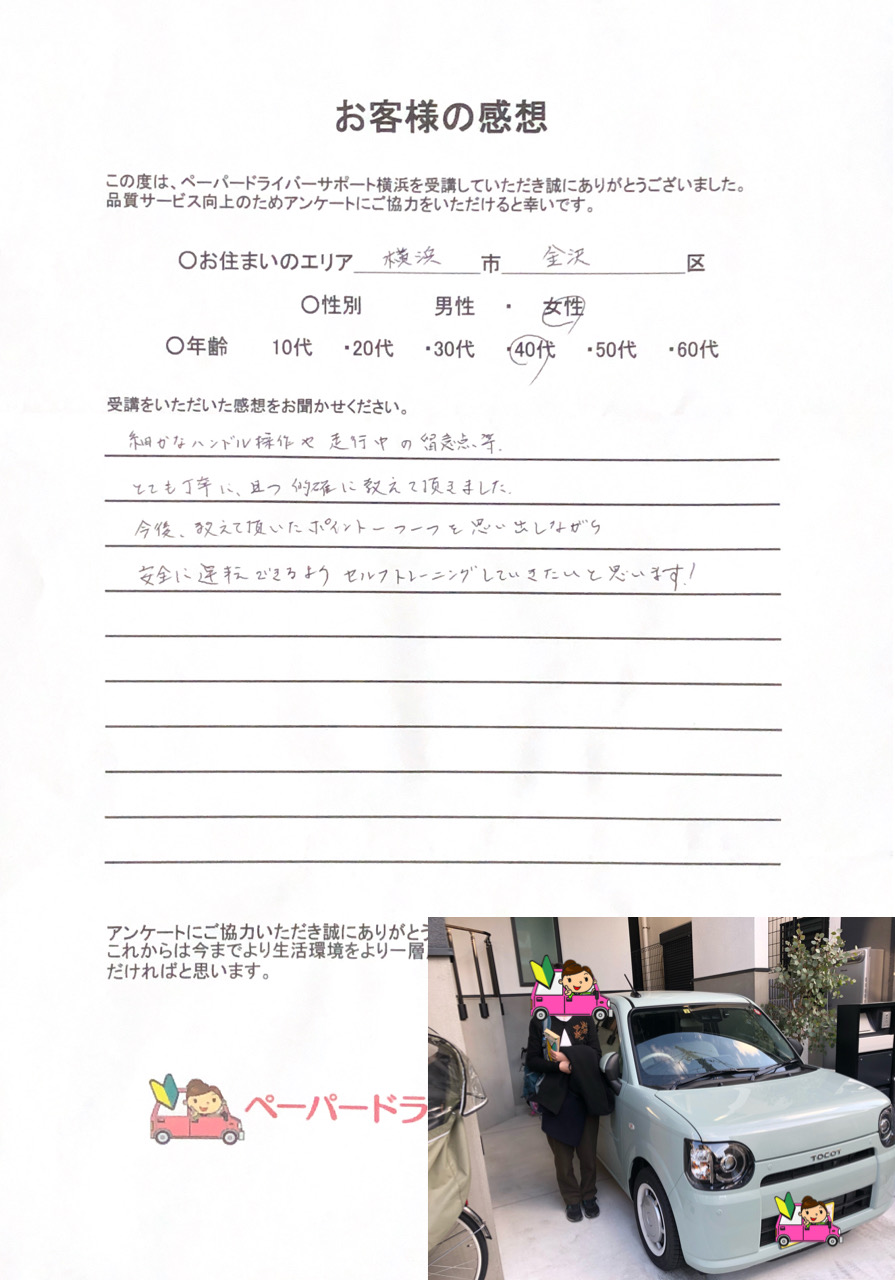 お客様の感想
この度は、ペーパードライバーサポート横浜を受講していただき誠にありがとうございました。
品質サービス向上のためアンケートにご協力をいただけると幸いです。
〇お住まいのエリア 横浜 市 金沢 区
〇性別 男性 ・ 女性
〇年齢 10代 ・20代 ・30代 ・40代 ・50代 ・60代
受講をいただいた感想をお聞かせください。
細かなハンドル操作や走行中の留意点等、
とても丁寧に、且つ的確に教えて頂きました。
今後、教えて頂いたポイント一つ一つを思い出しながら
安全に運転できるようセルフトレーニングしていきたいと思います!
アンケートにご協力いただき誠にありがとう
これからは今までより生活環境をより一層
だければと思います。
ペーパードラ
TOCOT